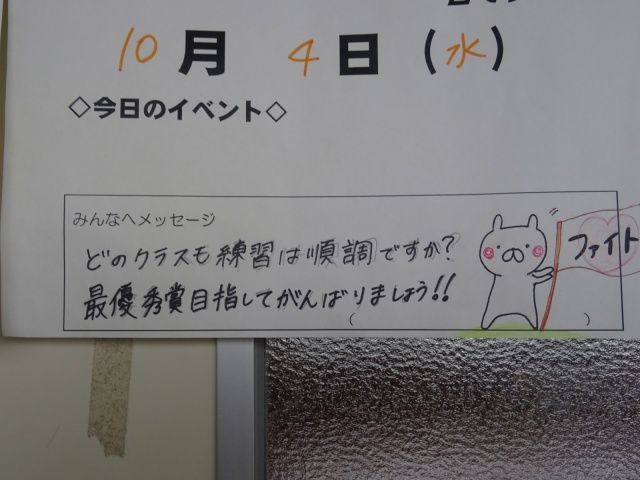 10月 4日(水)
◇今日のイベント◇
みんなへメッセージ
どのクラスも練習は順調ですか?
最優秀賞目指してがんばりましょう!!
ファイト